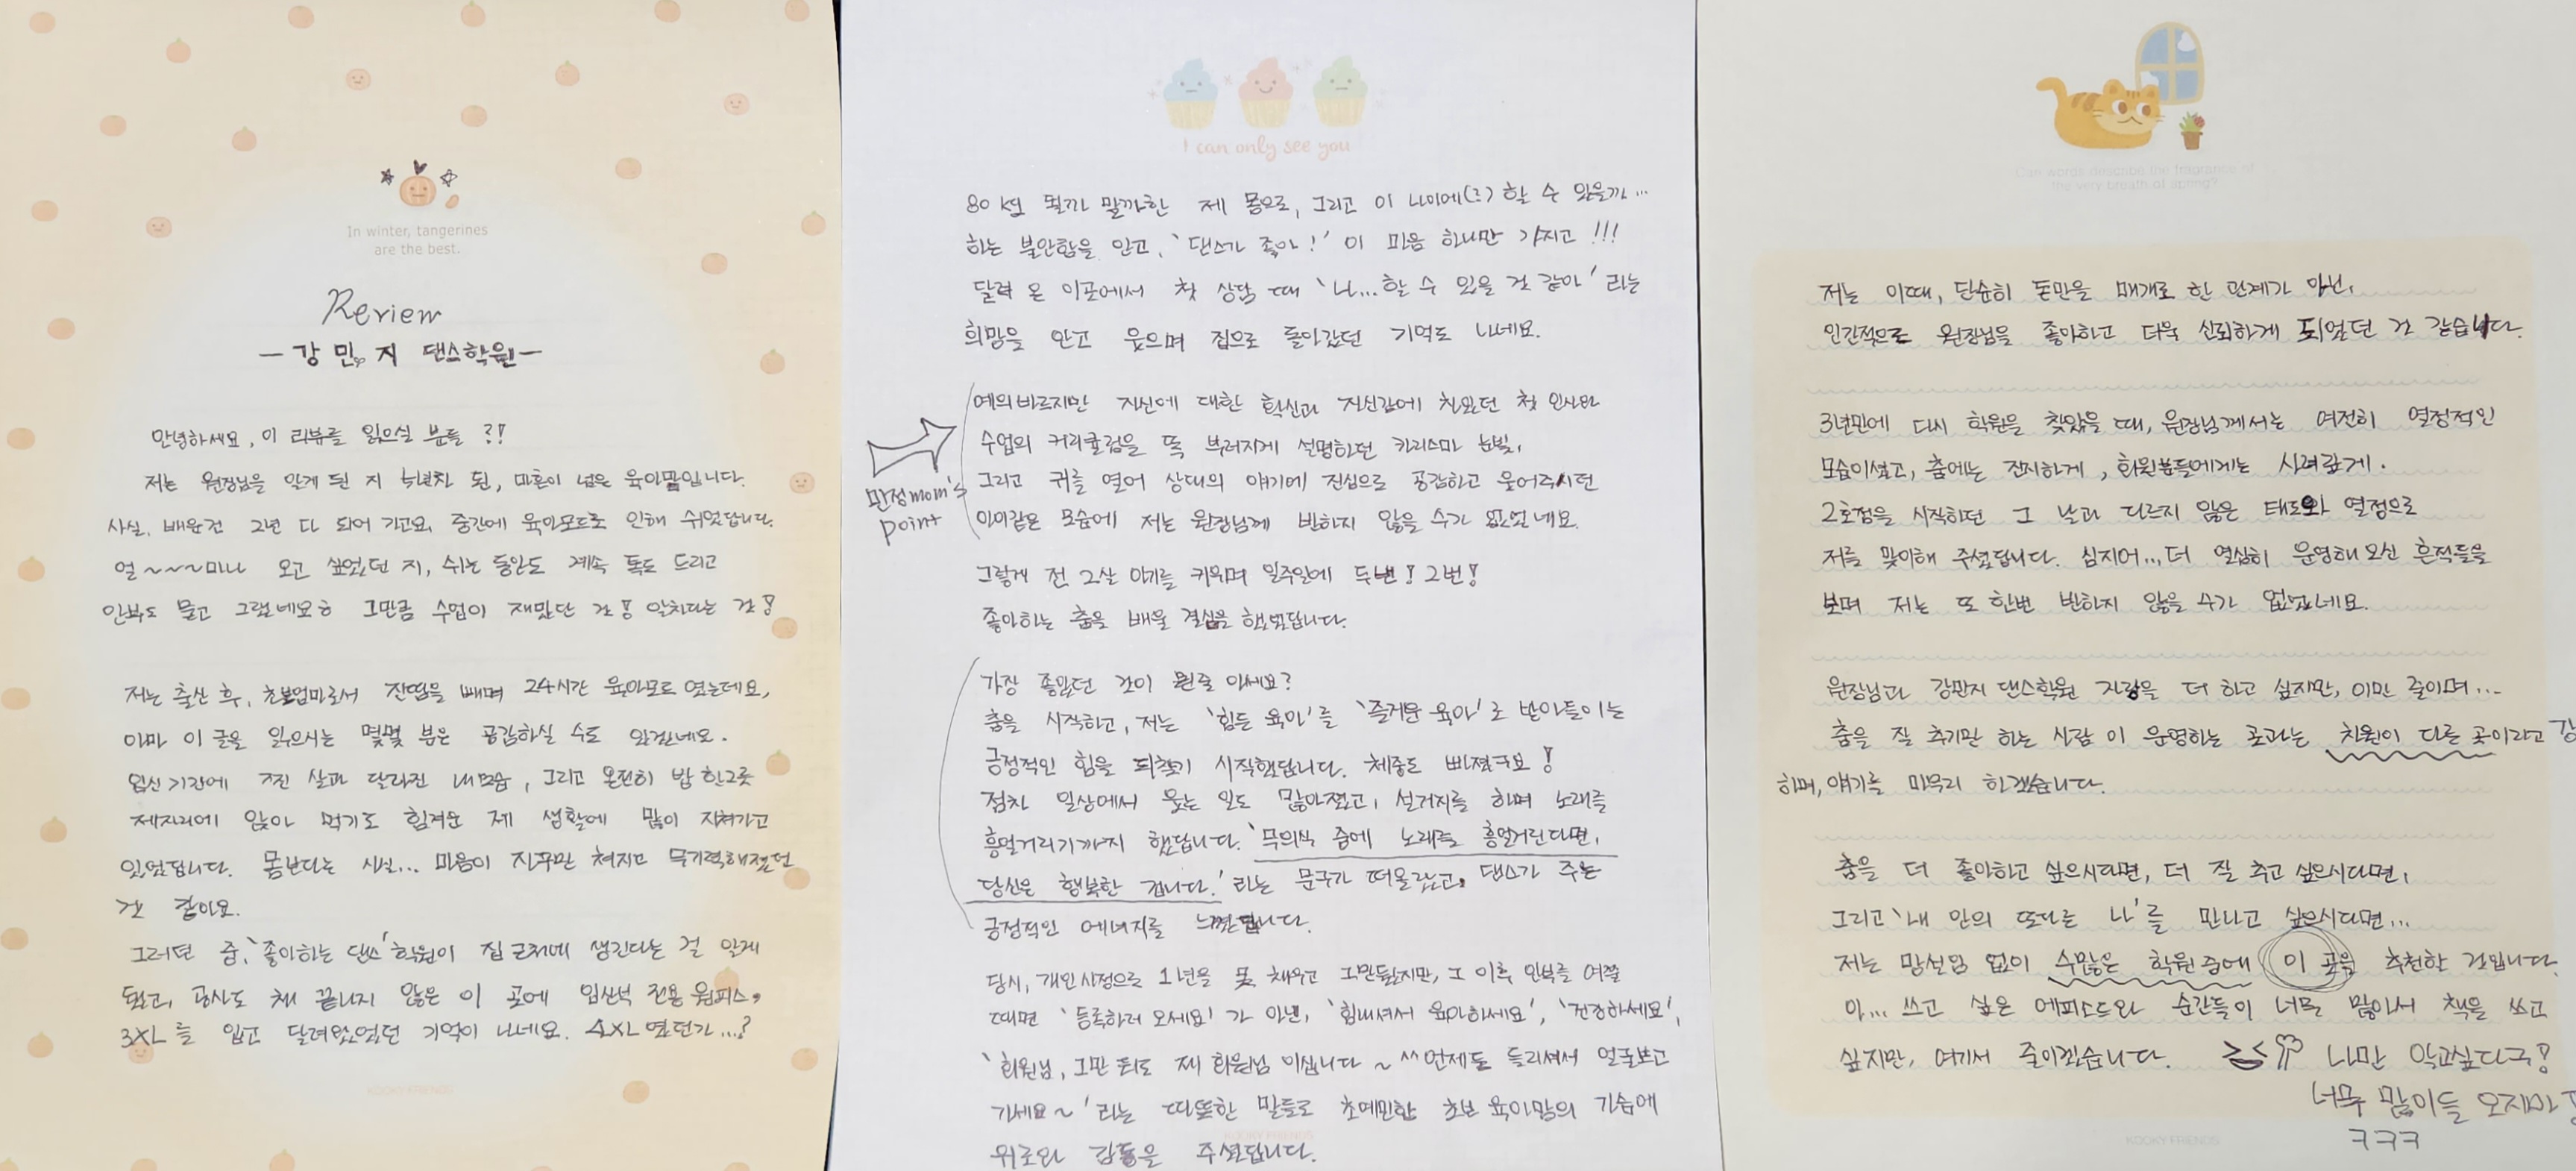 In winter, tangerines
are the best.
Review
- 강민지 댄스학원 -
안녕하세요, 이 리뷰를 읽으실 분들 ?!
저는 원장님을 알게 된 지 5년차 된, 마흔이 넘은 육아맘입니다.
사실, 배운건 2년 다 되어 가고요, 중간에 육아모드로 인해 쉬었답니다.
얼~~~마나 오고 싶었던 지, 쉬는 동안도 계속 톡도 드리고
안부도 묻고 그랬네요ㅎ 그만큼 수업이 재밌단 것! 알차다는 것!
저는 출산 후, 초보엄마로서 진땀을 빼며 24시간 육아모드 였는데요,
아마 이 글을 읽으시는 몇몇 분은 공감하실 수도 있겠네요.
임신기간에 찐 살과 달라진 내모습, 그리고 온전히 밥 한그릇
제자리에 앉아 먹기도 힘겨운 제 생활에 많이 지쳐가고
있었답니다. 몸보다는 사실... 마음이 자꾸만 쳐지고 무기력해졌던
것 같아요.
그러던 중, '좋아하는 댄스' 학원이 집 근처에 생긴다는 걸 알게
됐고, 공사도 채 끝나지 않은 이 곳에 임산부 전용 원피스,
3XL를 입고 달려왔었던 기억이 나네요. 4XL였던가...?
KOOKY FRIENDS
I can only see you
80kg 될까 말까한 제 몸으로, 그리고 이 나이에(?) 할 수 있을까...
하는 불안함을 안고, '댄스가 좋아!' 이 마음 하나만 가지고 !!!
달려 온 이곳에서 첫 상담 때 '나...할 수 있을 것 같아' 라는
희망을 안고 웃으며 집으로 돌아갔던 기억도 나네요.
예의바르지만 자신에 대한 확신과 자신감에 찼었던 첫 인사와
수업의 커리큘럼을 똑 부러지게 설명하던 카리스마 눈빛,
그리고 귀를 열어 상대의 얘기에 진심으로 공감하고 웃어주시던
아이같은 모습에 저는 원장님께 반하지 않을 수가 없었네요.
만정mom's
point
그렇게 전 2살 아기를 키우며 일주일에 두번! 2번!
좋아하는 춤을 배울 결심을 했었답니다.
가장 좋았던 것이 뭔줄 아세요?
춤을 시작하고, 저는 '힘든 육아'를 '즐거운 육아'로 받아들이는
긍정적인 힘을 되찾기 시작했답니다. 체중도 빠졌구요!
점차 일상에서 웃는 일도 많아졌고, 설거지를 하며 노래를
흥얼거리기까지 했답니다. '무의식 중에 노래를 흥얼거린다면,
당신은 행복한 겁니다.' 라는 문구가 떠올랐고, 댄스가 주는
긍정적인 에너지를 느꼈답니다.
당시, 개인사정으로 1년을 못 채우고 그만뒀지만, 그 이후 안부를 여쭐
때면 '등록하러 오세요!'가 아닌, '힘내셔서 육아하세요', '건강하세요',
'회원님, 그만 둬도 제 회원님 이십니다~^^언제든 들리셔서 얼굴보고
가세요~' 라는 따뜻한 말들로 초예민한 초보 육아맘의 가슴에
위로와 감동을 주셨답니다.
KOOKY FRIENDS
Can words describe the fragrance of
the very breath of spring?
저는 이때, 단순히 돈만을 매개로 한 관계가 아닌,
인간적으로 원장님을 좋아하고 더욱 신뢰하게 되었던 것 같습니다.
3년만에 다시 학원을 찾았을 때, 원장님께서는 여전히 열정적인
모습이셨고, 춤에는 진지하게, 회원분들에게는 사려깊게.
2호점을 시작하던 그 날과 다르지 않은 태도와 열정으로
저를 맞이해 주셨답니다. 심지어...더 열심히 운영해오신 흔적들을
보며 저는 또 한번 반하지 않을 수가 없었네요.
원장님과 강민지 댄스학원 자랑을 더 하고 싶지만, 이만 줄이며...
춤을 잘 추기만 하는 사람이 운영하는 곳과는 차원이 다른 곳이라고 강
하며, 얘기를 마무리 하겠습니다.
춤을 더 좋아하고 싶으시다면, 더 잘 추고 싶으시다면,
그리고 '내 안의 또다른 나'를 만나고 싶으시다면...
저는 망설임 없이 수많은 학원 중에 이 곳을 추천할 것입니다.
아... 쓰고 싶은 에피소드와 순간들이 너무 많아서 책을 쓰고
싶지만, 여기서 줄이겠습니다. 나만 알고싶다구!
너무 많이들 오지마!
ㅋㅋㅋ
KOOKY FRIENDS